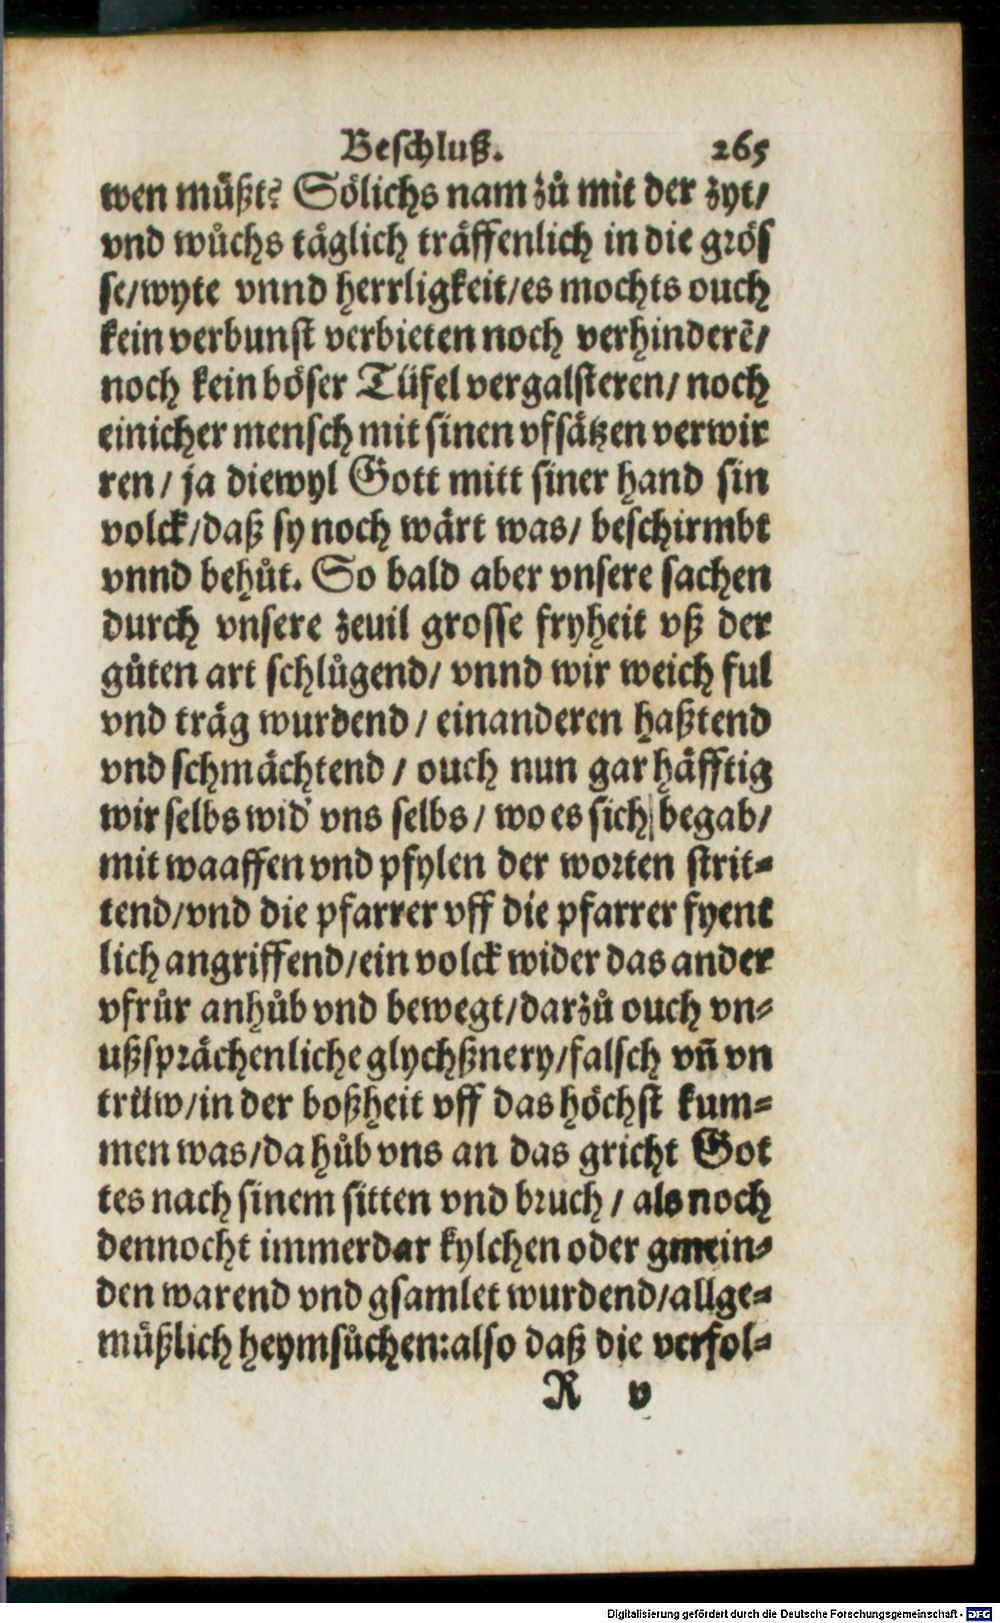 Beschluß. 265
wen müßt? Sölichs nam zů mit der zyt/
vnd wůchs täglich träffenlich in die grös
se/wyte vnnd herrligkeit/es mochts ouch
kein verbunst verbieten noch verhinderē/
noch kein böser Tüfel vergalsteren/ noch
einicher mensch mit sinen vfsätzen verwir
ren/ ja diewyl Gott mitt siner hand sin
volck/daß sy noch wärt was/ beschirmbt
vnnd behůt. So bald aber vnsere sachen
durch vnsere zeuil grosse fryheit vß der
gůten art schlůgend/ vnnd wir weich ful
vnd träg wurdend/ einanderen haßtend
vnd schmächtend/ ouch nun gar häfftig
wir selbs wid' vns selbs/ wo es sich begab/
mit waaffen vnd pfylen der worten strit-
tend/vnd die pfarrer vff die pfarrer fyent
lich angriffend/ein volck wider das ander
vfrůr anhůb vnd bewegt/darzů ouch vn-
ußsprächenliche glychßnery/falsch vñ vn
trüw/in der boßheit vff das höchst kum-
men was/da hůb vns an das gricht Got
tes nach sinem sitten vnd bruch/ als noch
dennocht immerdar kylchen oder gmein-
den warend vnd gsamlet wurdend/allge-
müßlich heymsůchen:also daß die verfol-
R v
Digitalisierung gefördert durch die Deutsche Forschungsgemeinschaft - DFG